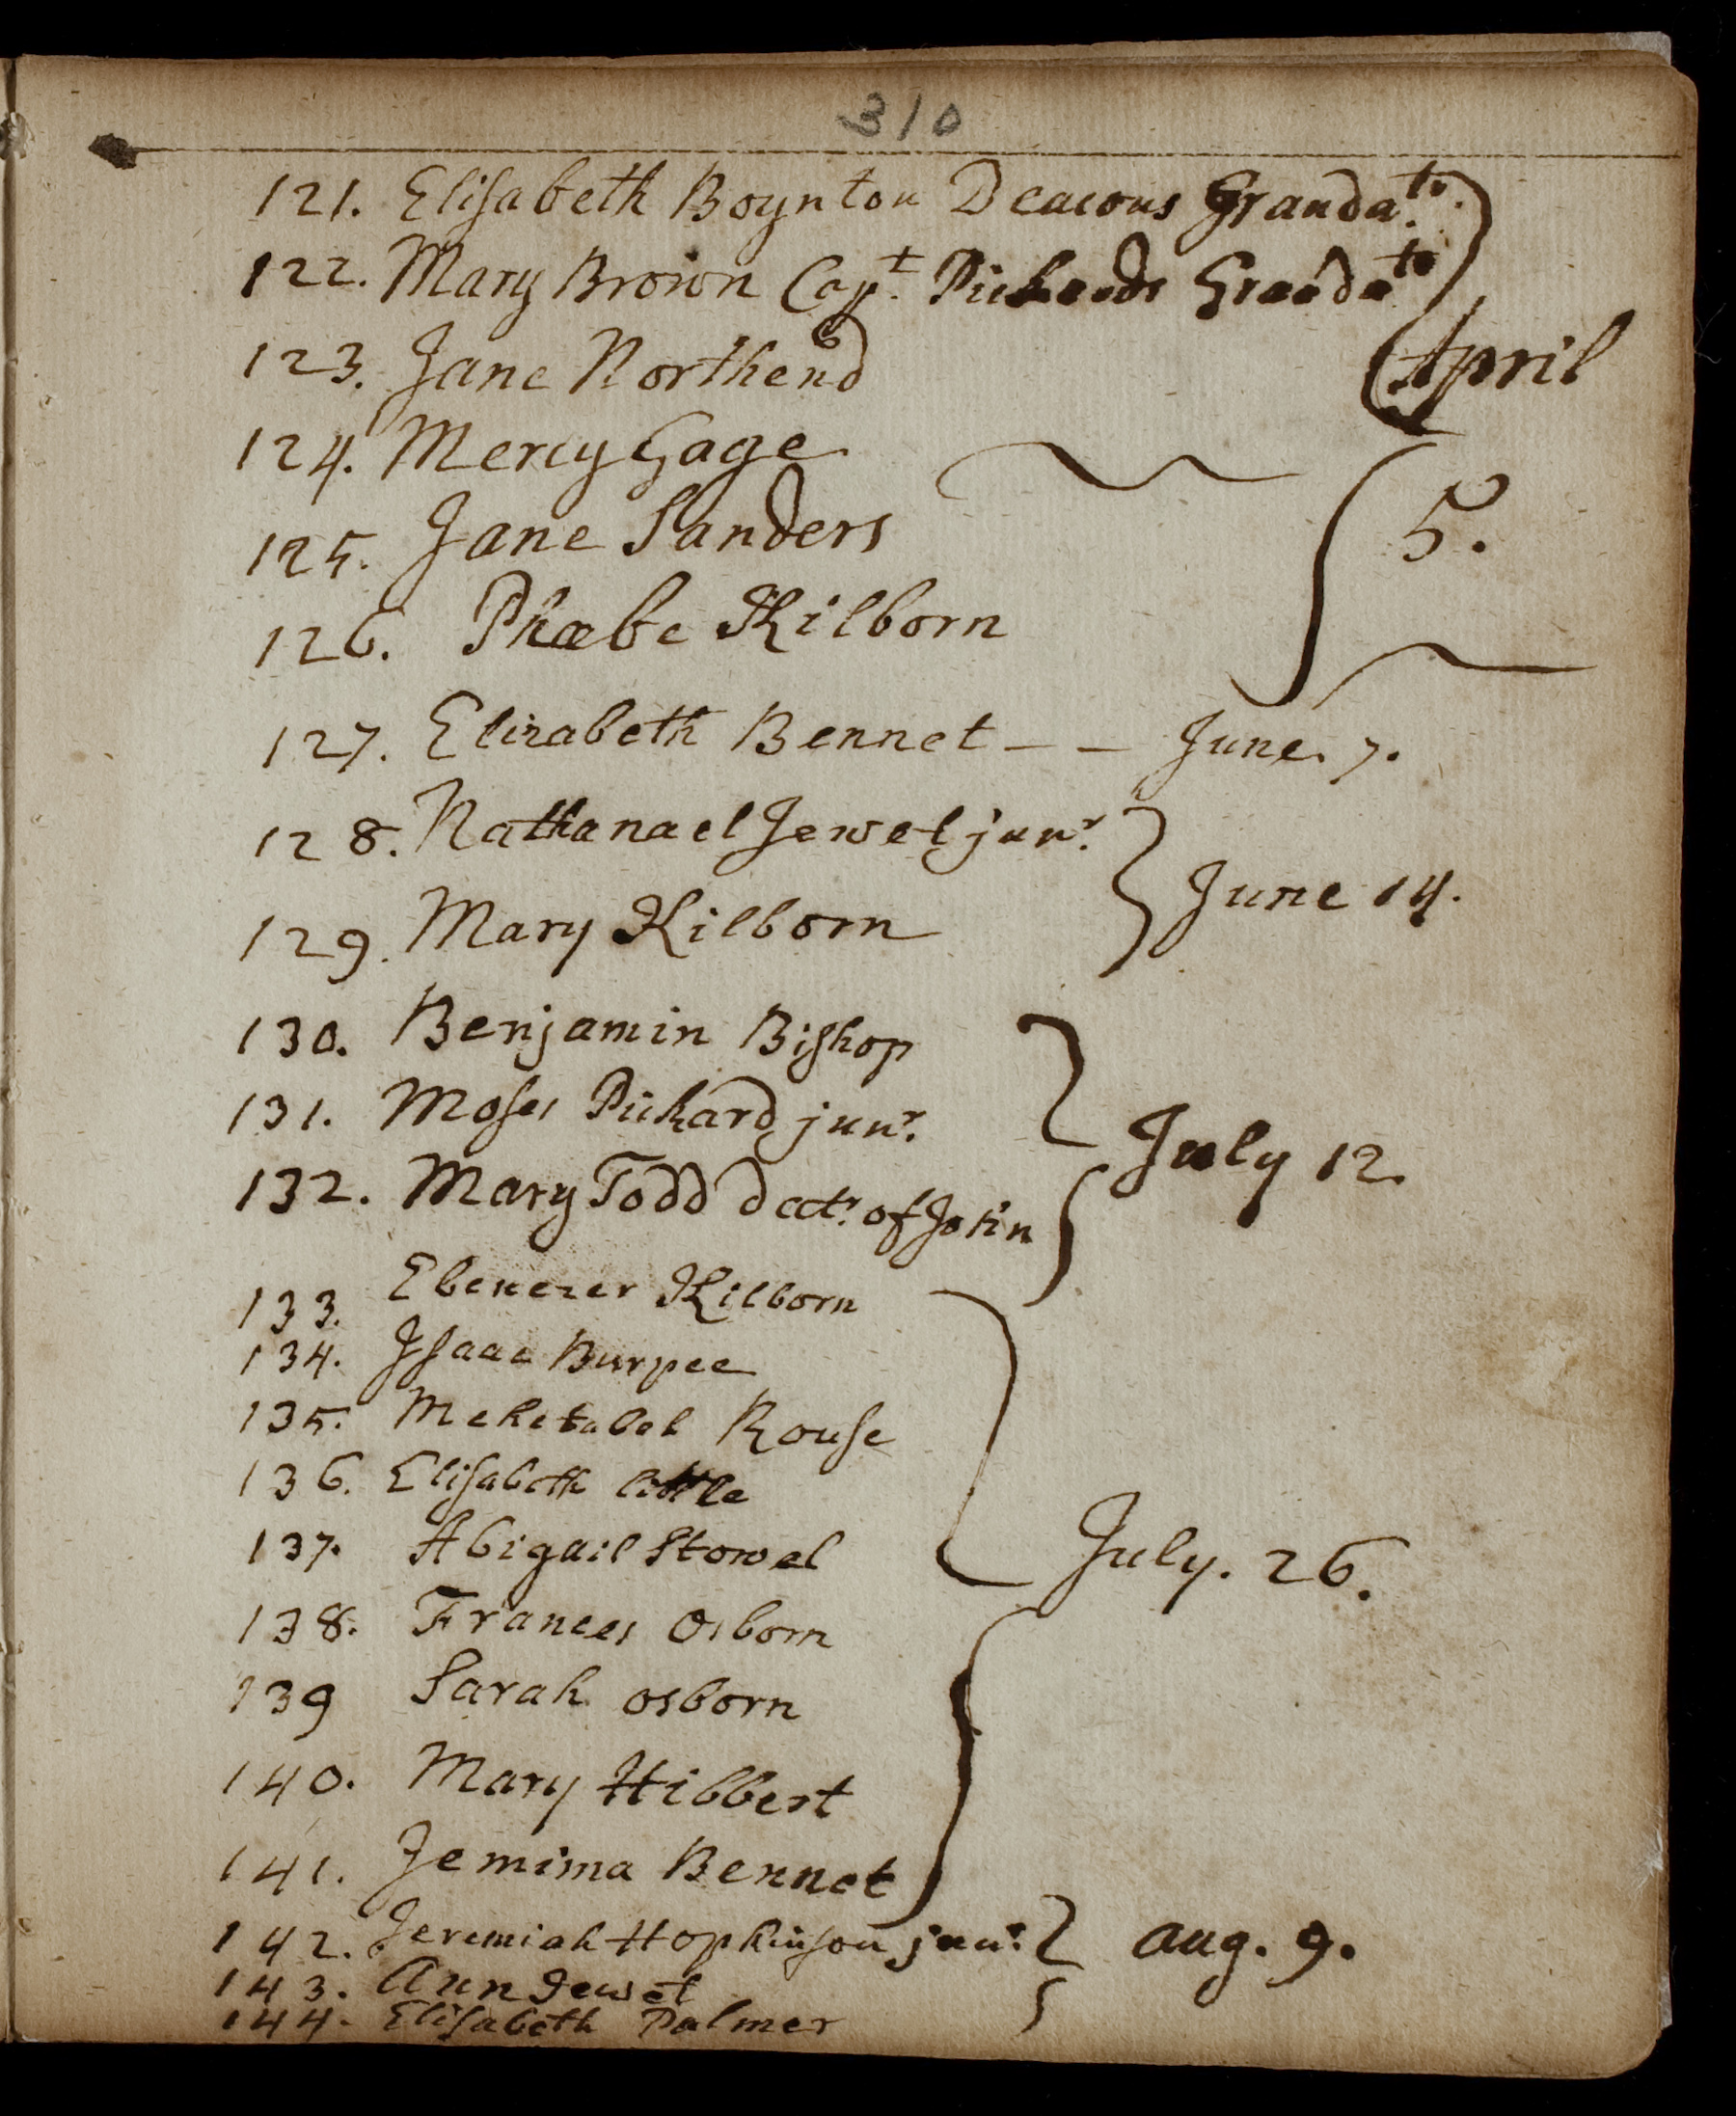 310
121. Elisabeth Boynton Deacons Grandatr.
122. Mary Brown Capt. Pickards Grandatr
123. Jane Northend
April
124. Mercy Gage
125. Jane Sanders
5.
126. Phœbe Kilborn
127. Elizabeth Bennet – – June. 7.
128. Nathanael Jewet, junr.
129. Mary Kilborn
June 14.
130. Benjamin Bishop
131. Moses Pickard, junr.
132. Mary Todd datr. of John
July 12.
133. Ebenezer Kilborn
134. Isaac Burpee
135. Mehetabel Rouse
136. Elisabeth little
137. Abigail Stowel
July. 26.
138. Frances Osborn
139 Sarah osborn
140. Mary Hibbert
141. Jemima Bennet
142. Jeremiah Hopkinson junr. Aug. 9.
143. Ann Jewet
144. Elisabeth Palmer